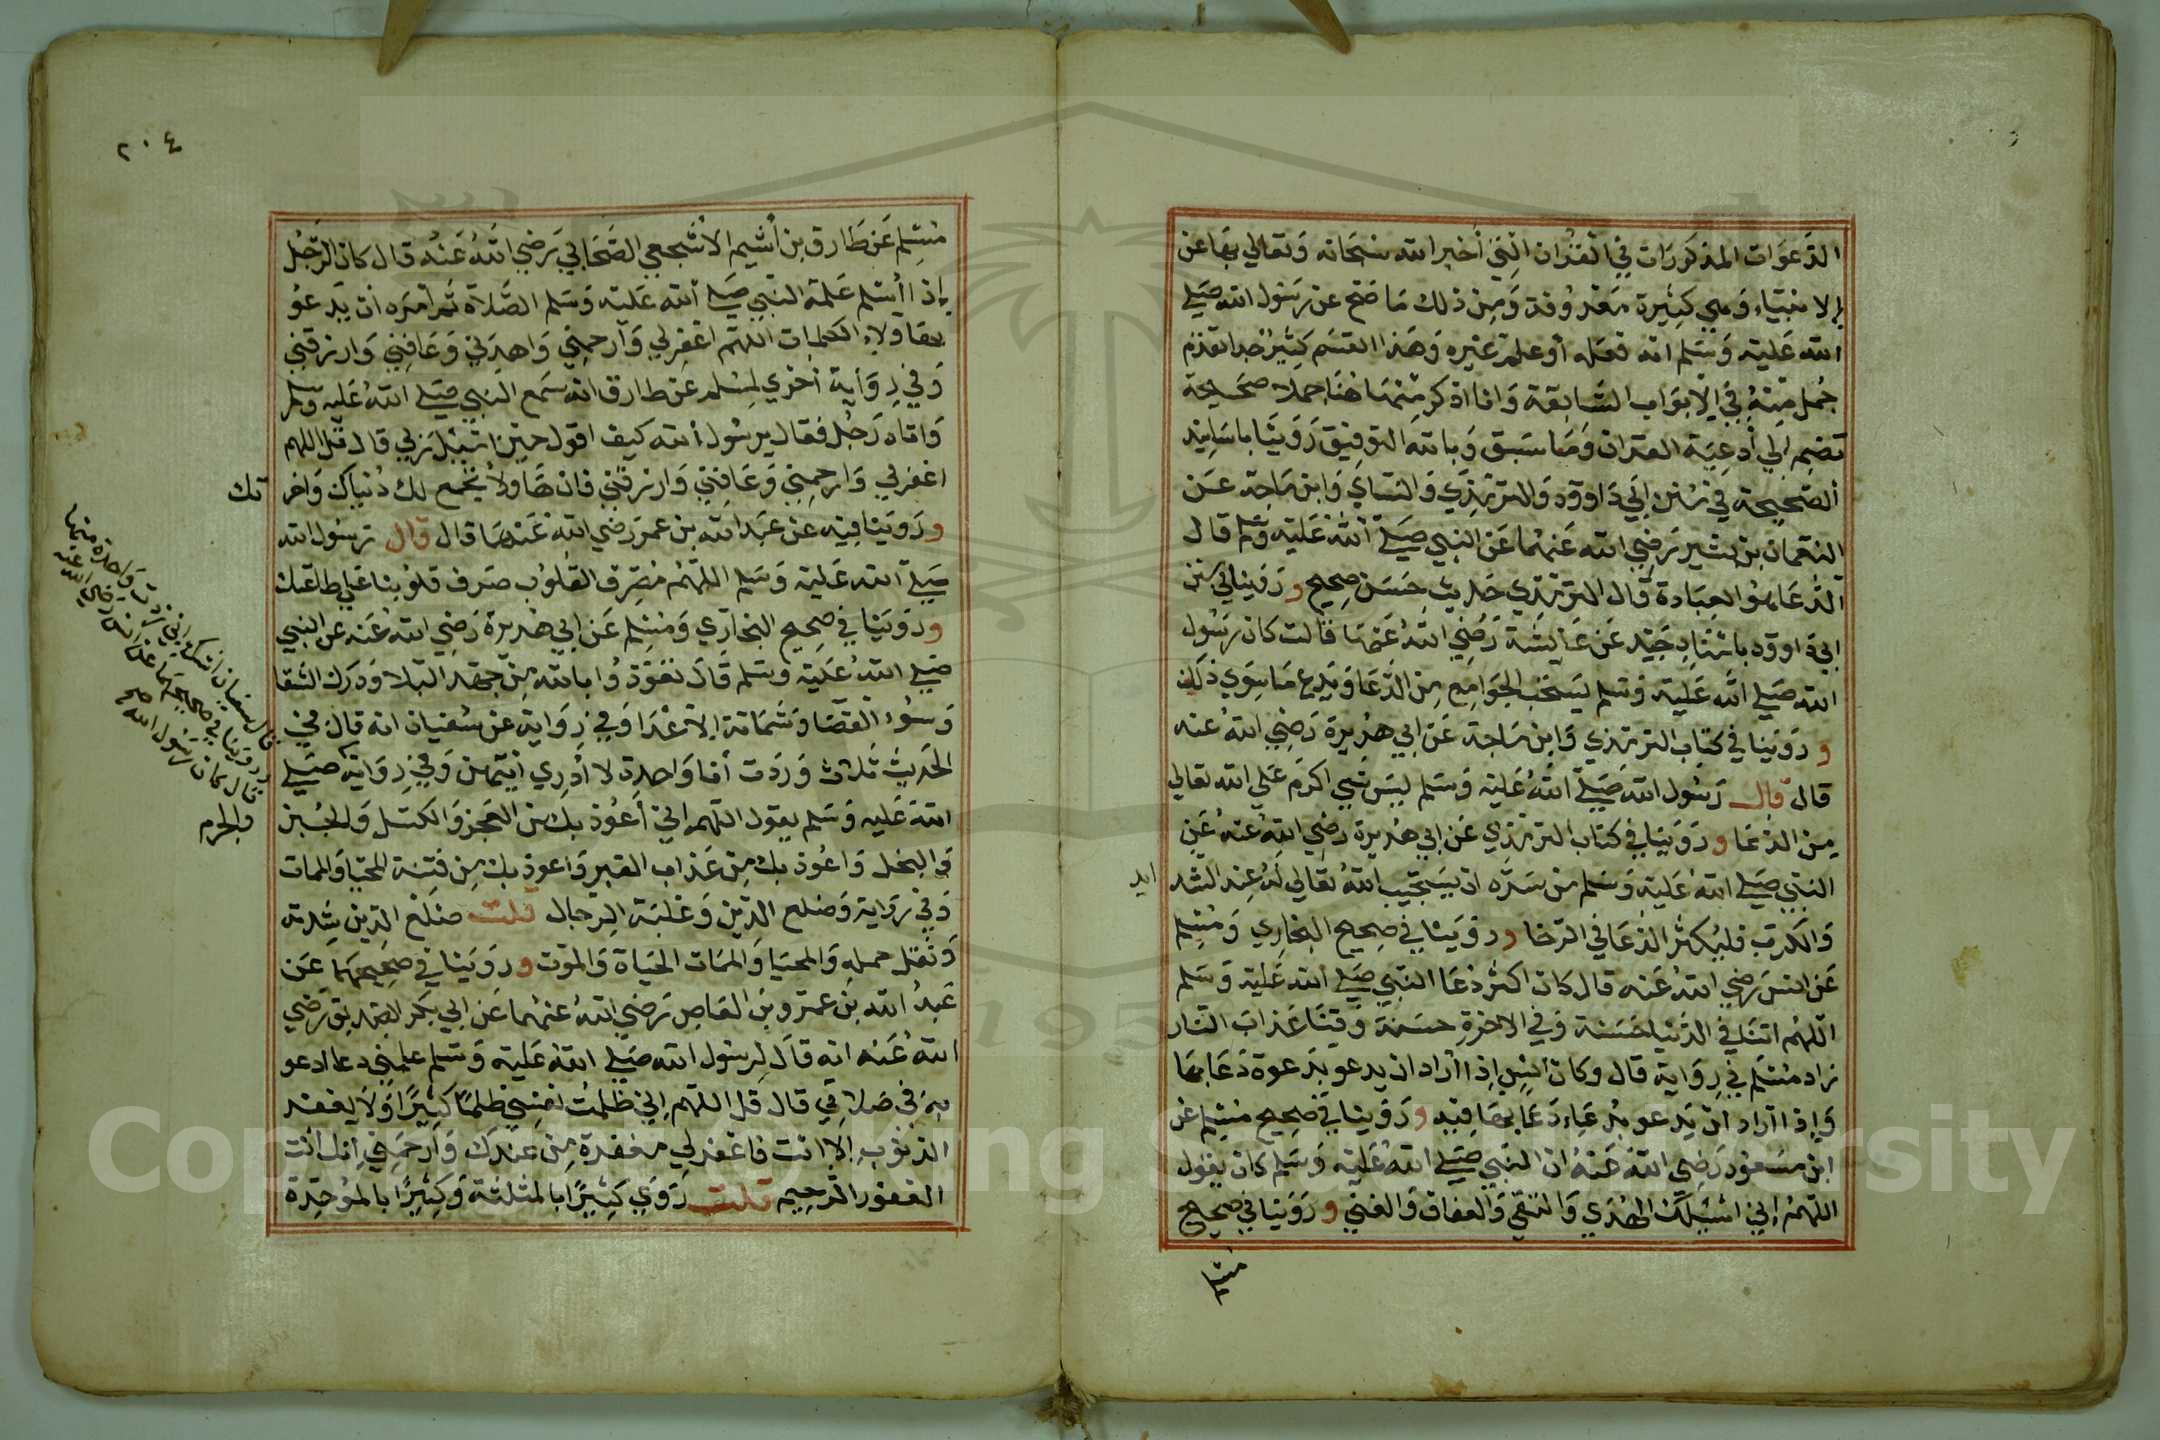 الدَّعَوَات المذكورَات في القرآن التي أخبر الله سبحانه وَتعالي بهَا عن
الانبيَاء وَهي كثِيرة مَعْرُوفة وَمِن ذلك مَا صَح عن رَسُول الله صَلي
الله عَلَيه وَسَلم انه فعَله أو علمَهُ غيره وَهَذا القسَم كثِيرٌ جدا تقدم
جُمل مِنهُ فِي الابوَاب السَّابِقة وَانا اذكر مِنهَا هُنا جملا صَحِيحة
تضم الي أدعِيَة القرآن وَمَا سَبق وَبالله التوفِيق رَوَينَا باسَانِيد
الصَّحيحة في سُنن ابي دَاوود وَالترمِذِي وَالنسَاي وَابن مَاجة عَن
النعمان بن بشير رَضِي الله عَنهُما عَن النبي صَلي الله عَليه وَسَلم قال
الدُّعَا هوَ العِبَادة قال الترمِذي حَدِيث حَسَن صحِيح و رَوَينا في سنن
ابي دَاوود باسْنَادٍ جَيّد عَن عَايشَة رَضي اللهُ عَنهَا قالت كان رَسُول
الله صَلي الله عَليه وَسَلم يَستحب الجَوَامِع مِن الدُّعَا وَيَدع مَا سِوَي ذلك
و رَوَينا في كتاب الترمذي وَابن مَاجة عَن ابي هُرَيرَة رَضِي اللهُ عنه
قال قال رَسُول الله صَلي اللهُ عَلية وَسَلم ليسَ شي اكرم عَلي الله تعالي
مِن الدّعَا و رَوَينا في كتاب الترمِذي عَن ابي هُريرة رضِي اللهُ عنهُ عَن
النبي صَلي اللهُ عَلية وَسَلم من سَرَّه ان يَستجيب اللهُ تعالي لهُ عِند الشد
ايد
وَالكرَب فليُكثر الدعَا في الرّخا و رَوَينا في صحِيح البخاري وَمُسْلِم
عَن انسَ رَضي اللهُ عَنه قال كان اكثر دُعَا النبي صَلي الله عَلية وَسَلم
اللهُم اتنَا في الدُّنيا حَسَنة وَفي الاخرةِ حسَنة وَقِنَا عَذابَ النار
زاد مُسْلم في رِوَاية قال وَكان انس إذا اراد ان يدعو بدَعوة دَعَا بهَا
وَإذا اراد ان يَدعو بدُعَاء دَعَا بهَا فيه و رَوَينا في صحِيح مُسْلم عَن
ابن مسَعود رَضي اللهُ عَنهُ ان النبي صَلي اللهُ عَليه وَسَلم كان يقول
اللهُم إني اسْئلك الهُدَي وَالتقي وَالعفاف وَالغنَي و رَوَينا في صحيح
مسلم
٢٠٤
مُسْلِم عَن طَارق بن أشيم الاشجعي الصَّحَابي رَضي اللهُ عَنهُ قال كان الرّجُل
إذا أسْلم عَلمَه النبي صَلي الله عَليه وَسَلم الصَّلاة ثم أمَرَه ان يَدعُو
بهَاولاء الكلمات اللهُم اغفِرلي وَارحمني وَاهدِني وَعَافِني وَارزقني
وَفي رِوَاية أخري لمُسْلم عَن طارق انه سَمع النبي صَلي اللهُ عَليه وسلم
وَاتاه رَجُل فقال يرسُول الله كيف اقول حين اسْئل رَبي قال قل اللهم
اغفرلي وَارحمني وَعَافِني وَارزقني فان هَاولاء تجمع لك دُنياك وَاخر
تك
و رَوَينا فيه عَن عبَد الله بن عمر رَضِي اللهُ عَنهمَا قال قال رَسُول الله
صَلي الله عَلية وَسَلم اللهُم مُصَرف القلوُب صَرف قلوُبنا عَلي طاعَتك
و رَوَينا في صَحِيح البخارِي وَمُسْلم عَن ابي هُريرة رَضِي اللهُ عَنه عن النبي
صَلي اللهُ عَلية وسَلم قال تعَوّذوا بالله مِن جَهد البَلا وَدَرَك الشقا
وَسوُء القضَا وَشمَاتة الاعْدَا وَفي رِوَاية عن سُفيان انه قال في
الحَديث ثلاث وَزدت أنا وَاحِدة لا أدري ايتهن وَفي رِوَاية صَلي
قال سفيان اشك اني زدت وَاحِدَة مِنها
وروَينا في صَحيحهمَا عَن انس رَضي الله عَنه
قال كان رَسُول الله صح
اللهُ عَليه وَسَلم يقول اللّهم إني أعُوذ بك من العَجز وَالكسَل وَالجُبن
والهرم
وَالبخل وَاعُوذ بك مِن عَذاب القبر وَاعوذ بك مِن فِتنة المحيَا وَالممات
وَفي رِوَاية وَضلع الدّين وَغلبَة الرّجال قلت ضلع الدّين شِدته
وَثقل حمله وَالمحيَا وَالممَات الحيَاة وَالموت و رَوَينا في صَحِيحهمَا عَن
عَبدُ الله بن عمَرو بن العَاص رَضي اللهُ عنهُما عَن ابي بَكر الصّديق رَضي
اللهُ عَنه انه قال لرسُول الله صَلي اللهُ عَلية وَسَلم علمني دعا ادعو
بهِ في صَلاتي قال قل اللّهم إني ظلَمتُ نفسي ظلمًا كثِيرًا وَلا يغفر
الذنوب إلا انت فاغفرلي مغفرة مِن عِندَك وَارحَمني إنك أنت
الغفور الرّحيم قلت رَوَي كثِيرًا بالمثلثة وَكبيرًا بالموُحّدة